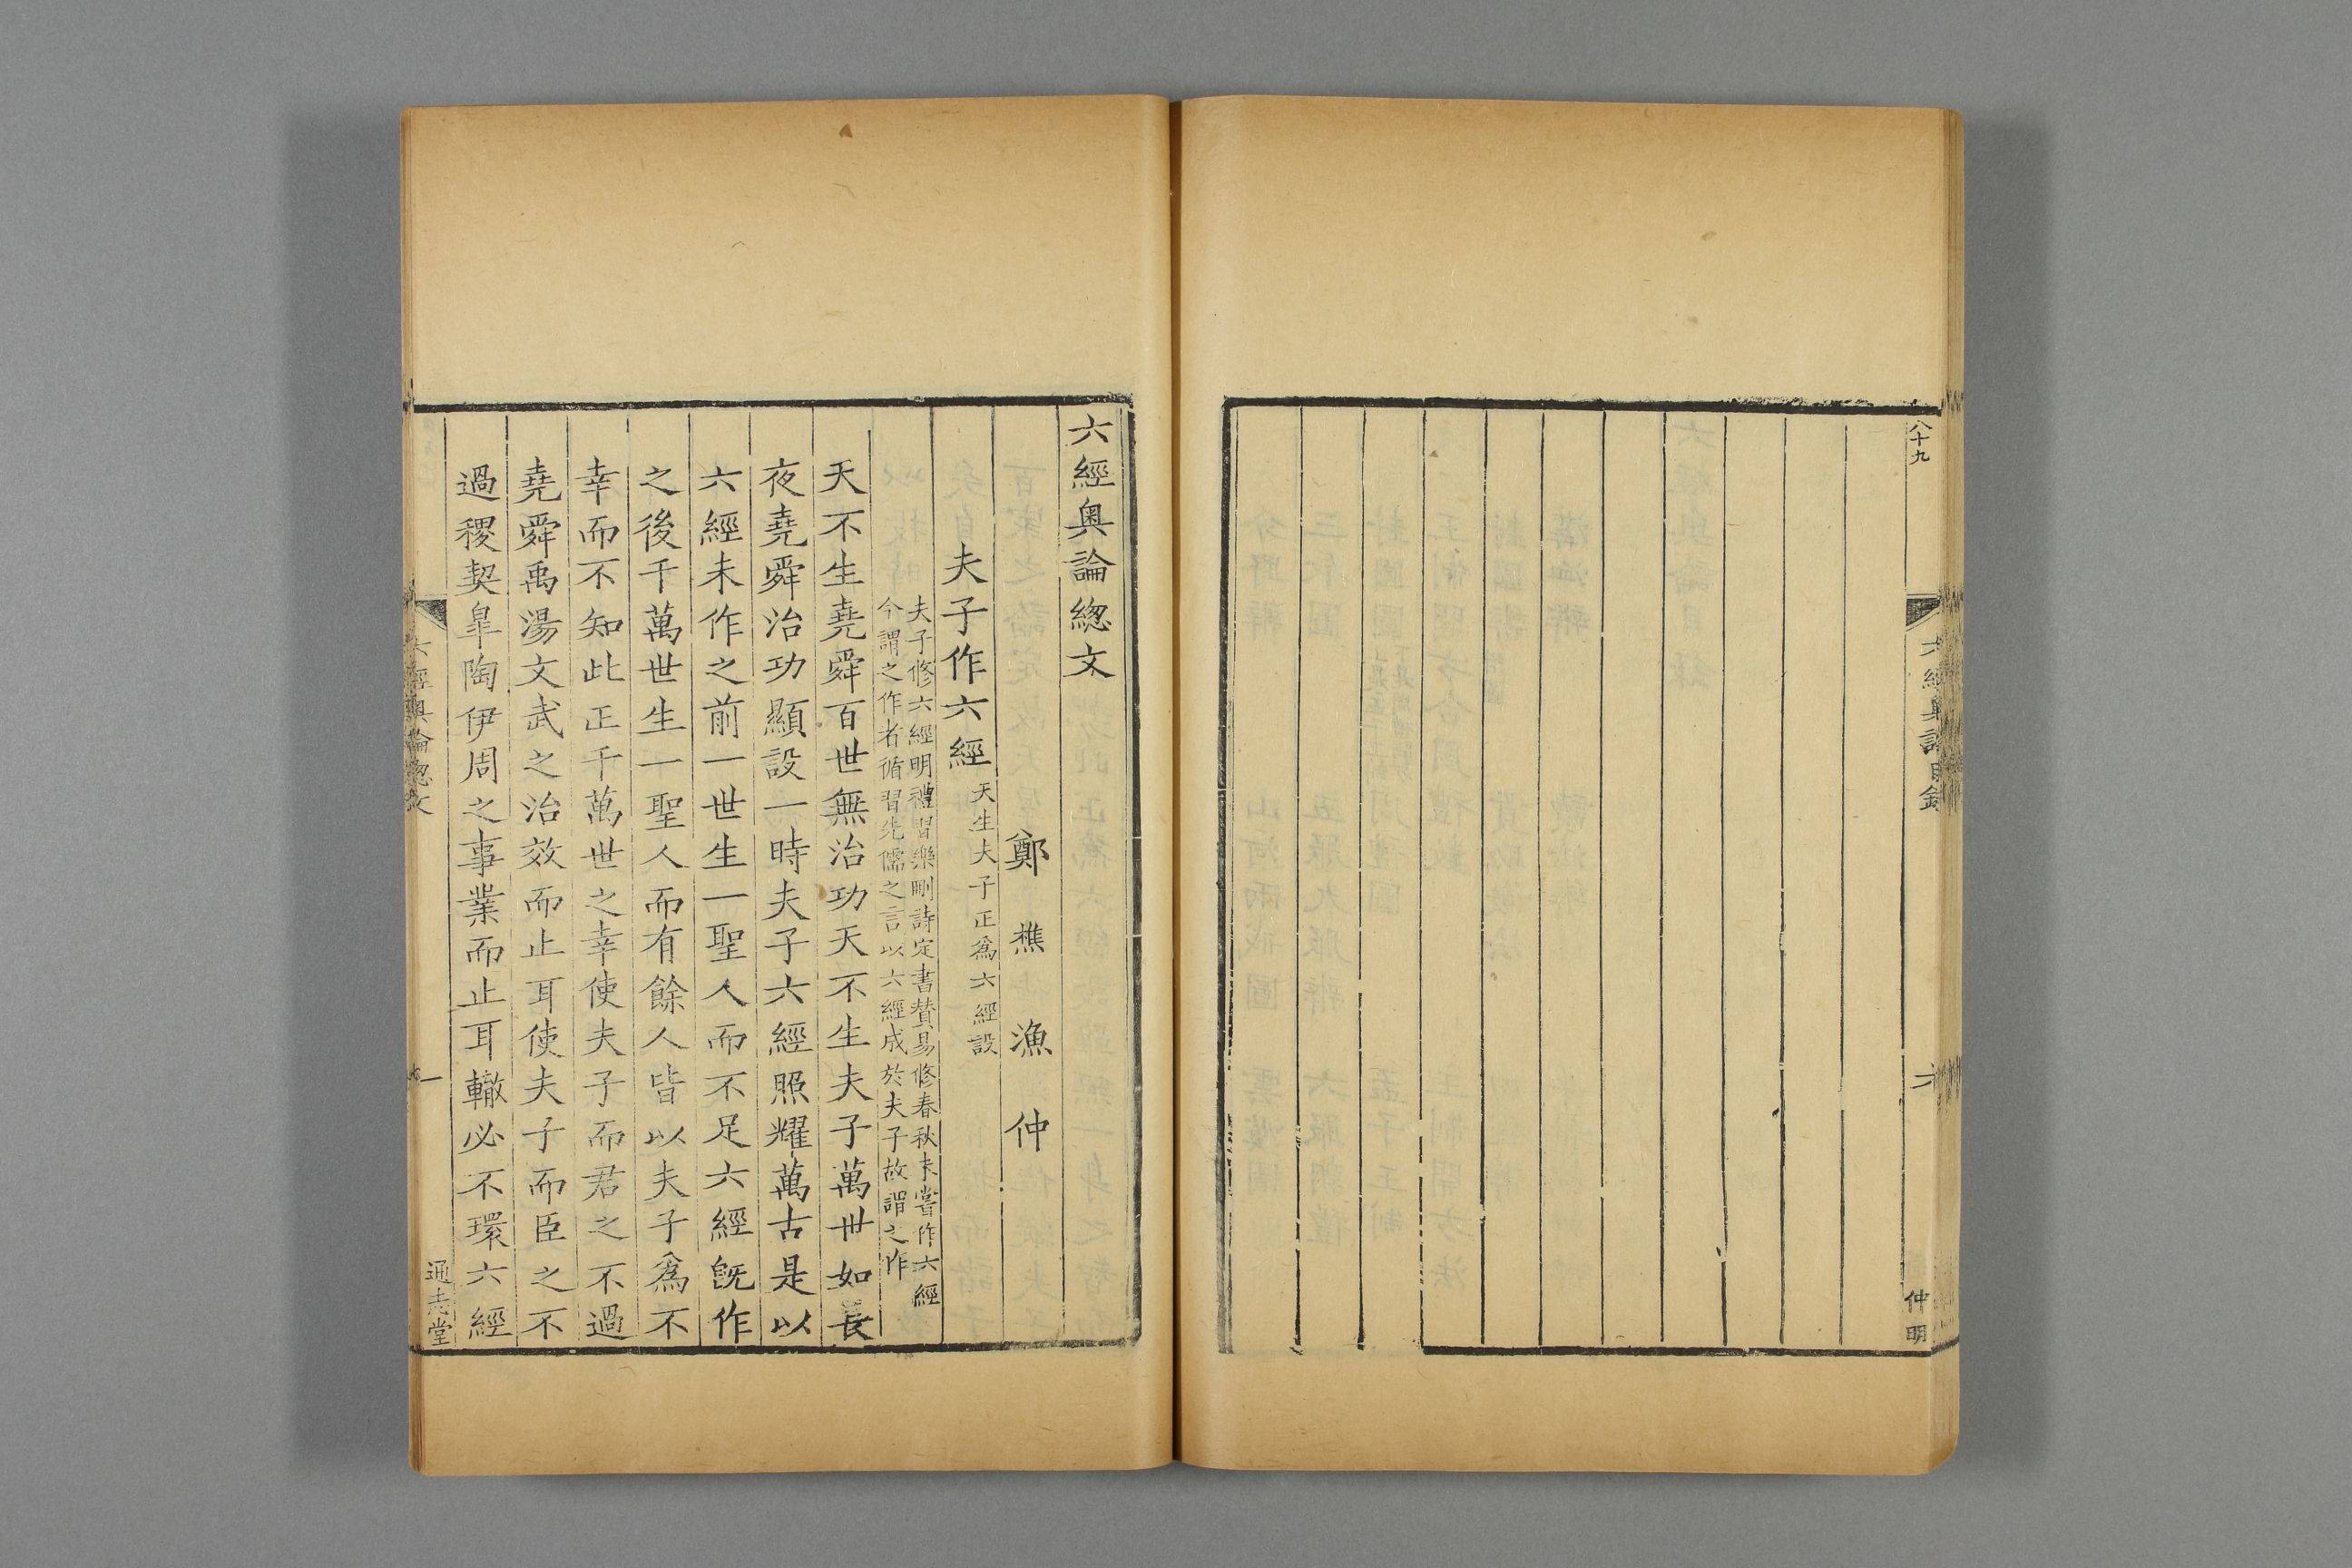 八十九
六經奧論目錄
六
仲明
六經奧論緫文
鄭樵漁仲
夫子作六經天生夫子正爲六經設
夫子修六經明禮習樂刪詩定書賛易修春秋未嘗作六經
今謂之作者循習先儒之言以六經成於夫子故謂之作
天不生堯舜百世無治功天不生夫子萬世如長
夜堯舜治功顯設一時夫子六經照耀萬古是以
六經未作之前一世生一聖人而不足六經旣作
之後千萬世生一聖人而有餘人皆以夫子爲不
幸而不知此正千萬世之幸使夫子而君之不過
堯舜禹湯文武之治效而止耳使夫子而臣之不
過稷契臯陶伊周之事業而止耳轍必不環六經
六經奧論緫文
一
通志堂